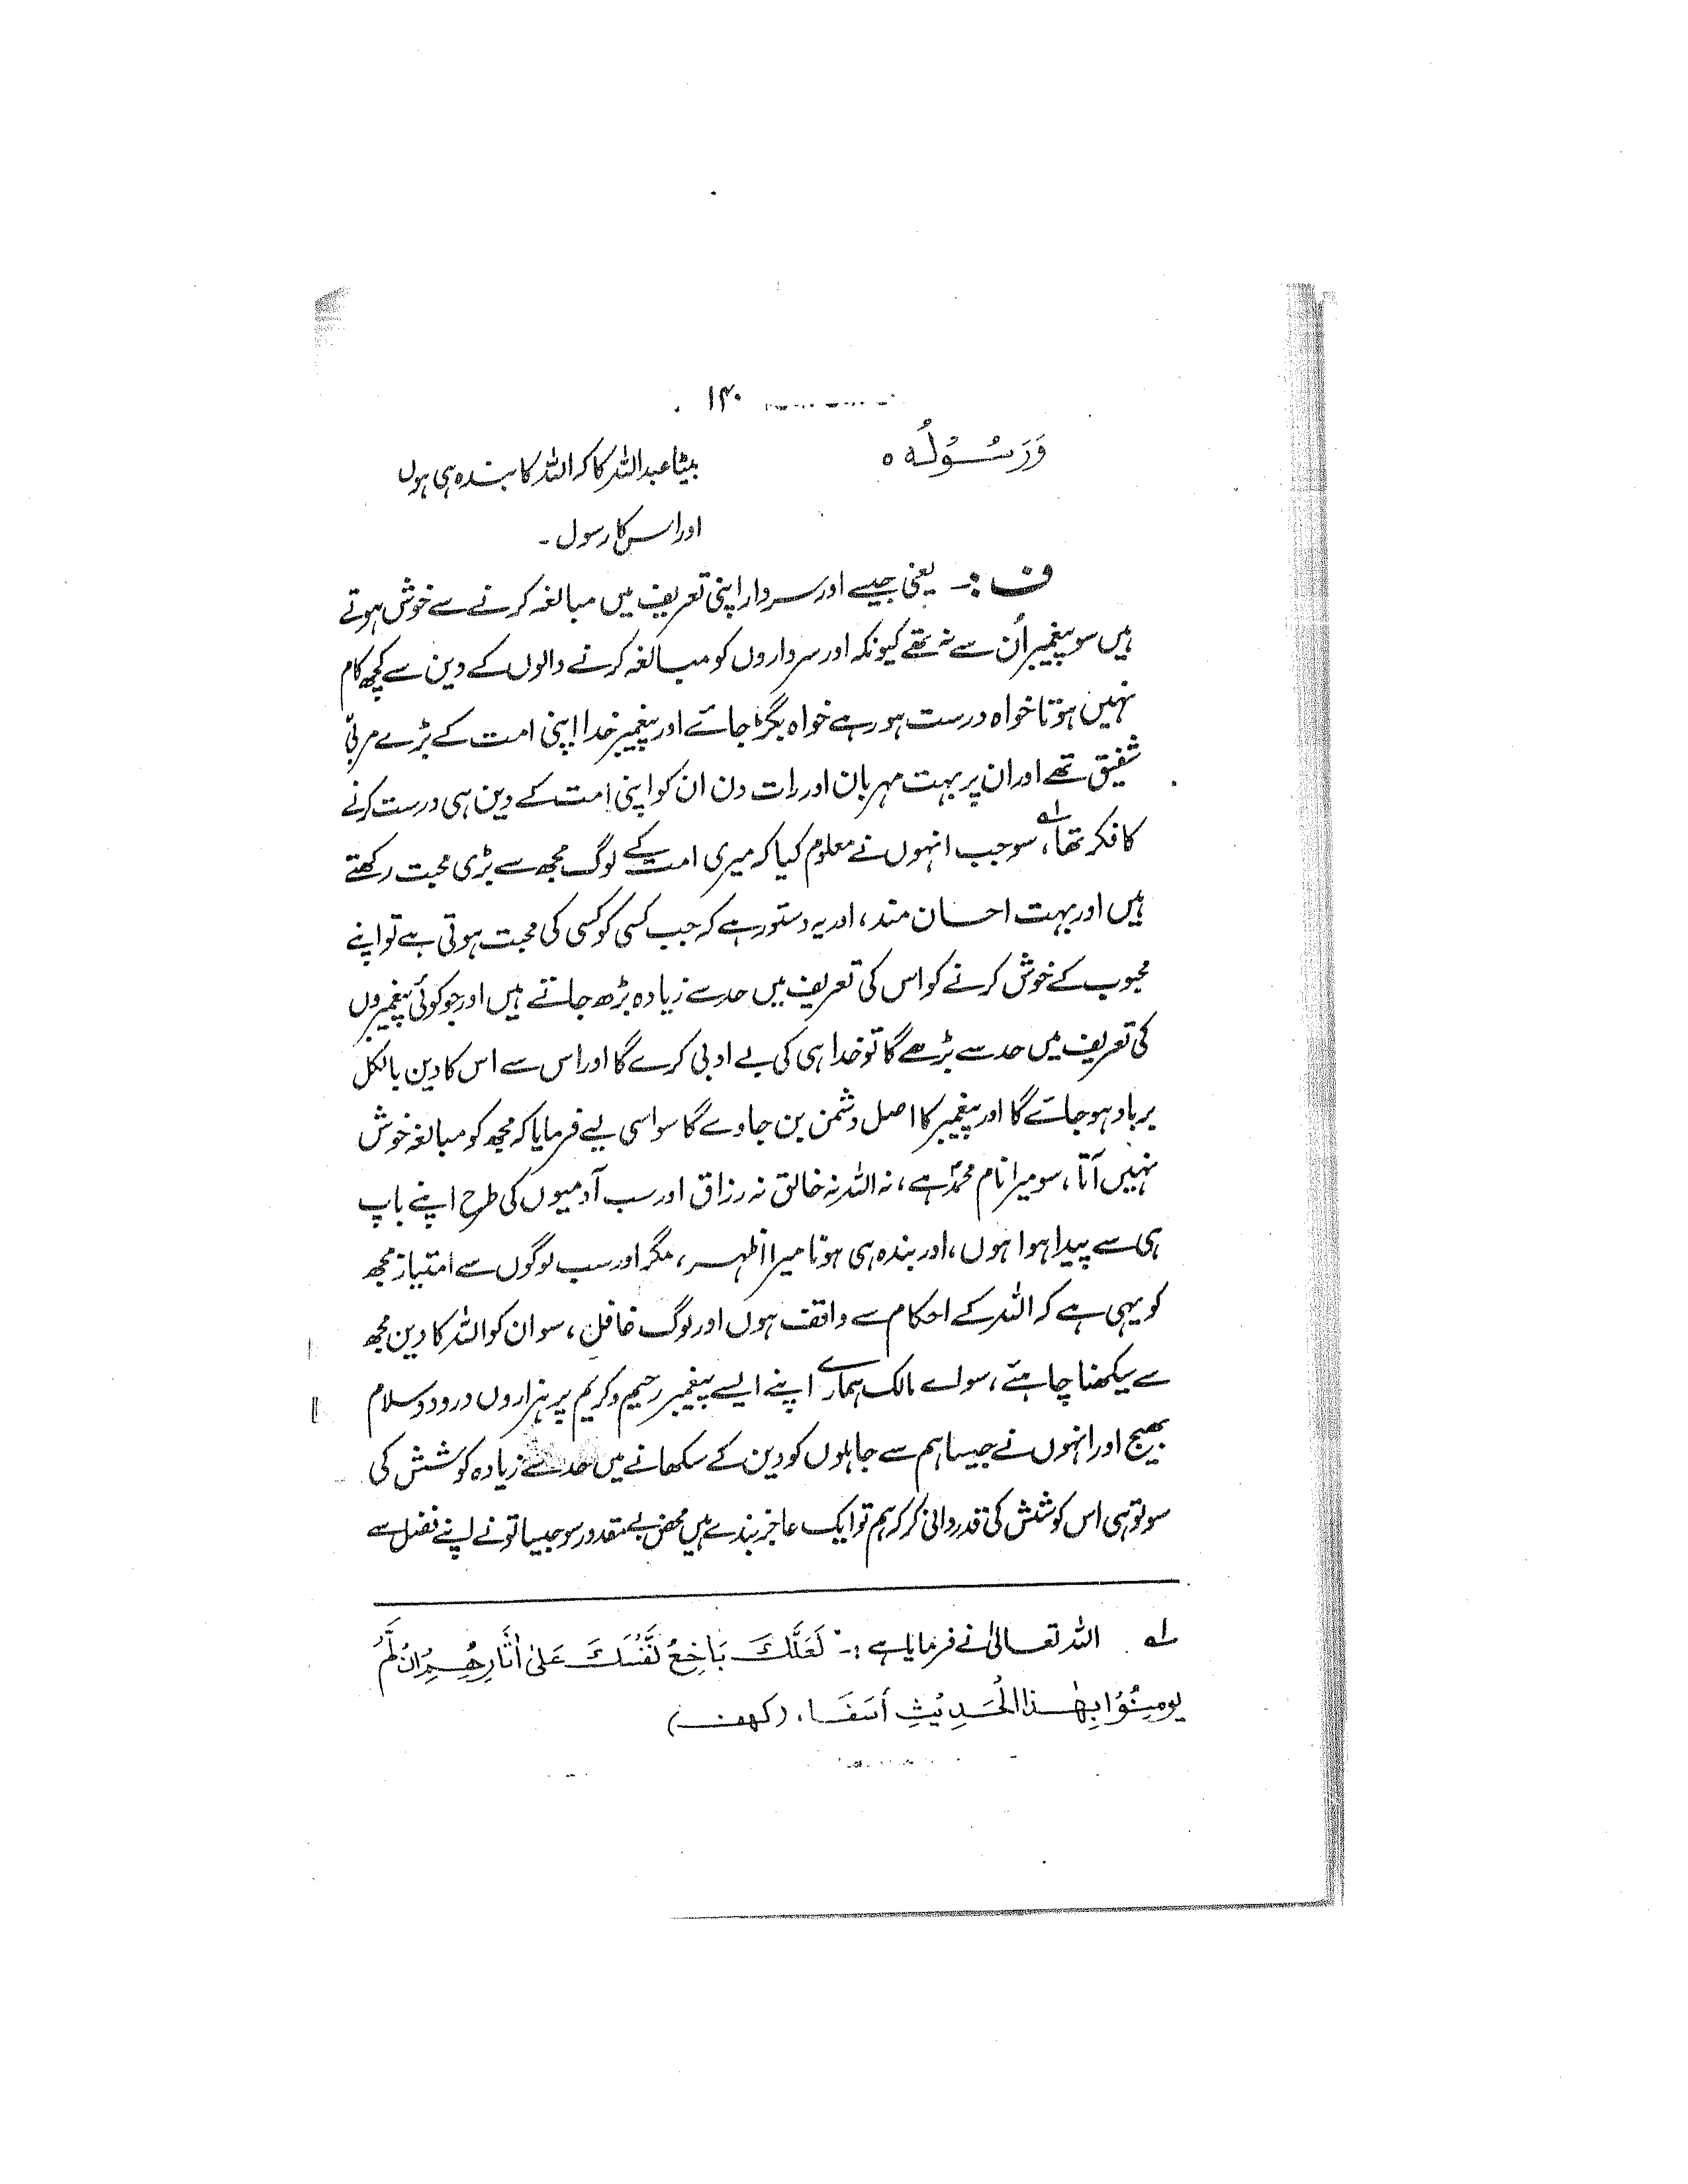 ۱۴۰
وَرَسُوْلُهٗ ○
بیٹا عبداللہ کا کہ اللہ کا بندہ ہی ہوں
اور اس کا رسول ۔
ف :۔ یعنی جیسے اور سردار اپنی تعریف میں مبالغہ کرنے سے خوش ہوتے
ہیں سو پیغمبر اُن سے نہ تھے کیونکہ اور سرداروں کو مبالغہ کرنے والوں کے دین سے کچھ کام
نہیں ہوتا خواہ درست ہو رہے خواہ بگڑ جائے اور پیغمبر خدا اپنی امت کے بڑے مربّی
شفیق تھے اور ان پر بہت مہربان اور رات دن ان کو اپنی امت کے دین ہی درست کرنے
کا فکر تھا ؎۱، سو جب انہوں نے معلوم کیا کہ میری امت کے لوگ مجھ سے بڑی محبت رکھتے
ہیں اور بہت احسان مند، اور یہ دستور ہے کہ جب کسی کو کسی کی محبت ہوتی ہے تو اپنے
محبوب کے خوش کرنے کو اس کی تعریف میں حد سے زیادہ بڑھ جاتے ہیں اور جو کوئی پیغمبروں
کی تعریف میں حد سے بڑھے گا تو خدا ہی کی بے ادبی کرے گا اور اس سے اس کا دین بالکل
برباد ہو جائے گا اور پیغمبر کا اصل دشمن بن جاوے گا سو اسی لیے فرمایا کہ مجھ کو مبالغہ خوش
نہیں آتا، سو میرا نام محمدؐ ہے، نہ اللہ نہ خالق نہ رزاق اور سب آدمیوں کی طرح اپنے باپ
ہی سے پیدا ہوا ہوں، اور بندہ ہی ہونا میرا اظہر، مگر اور سب لوگوں سے امتیاز مجھ
کو یہی ہے کہ اللہ کے احکام سے واقف ہوں اور لوگ غافل، سو ان کو اللہ کا دین مجھ
سے سیکھنا چاہئے، سو اے مالک ہمارے اپنے ایسے پیغمبر رحیم و کریم پر ہزاروں درود و سلام
بھیج اور انہوں نے جیسا ہم سے جاہلوں کو دین کے سکھانے میں حد سے زیادہ کوشش کی
سو تو ہی اس کوشش کی قدردانی کر کہ ہم تو ایک عاجز بندے ہیں محض بے مقدور سو جیسا تو نے اپنے فضل سے
؎۱ اللہ تعالیٰ نے فرمایا ہے :۔ لَعَلَّكَ بَاخِعٌ نَّفْسَكَ عَلیٰ اٰثَارِهِمْ اِنْ لَّمْ
یومِنُوْا بِهٰذَا الْحَدِیْثِ اَسَفَا. (کہف)